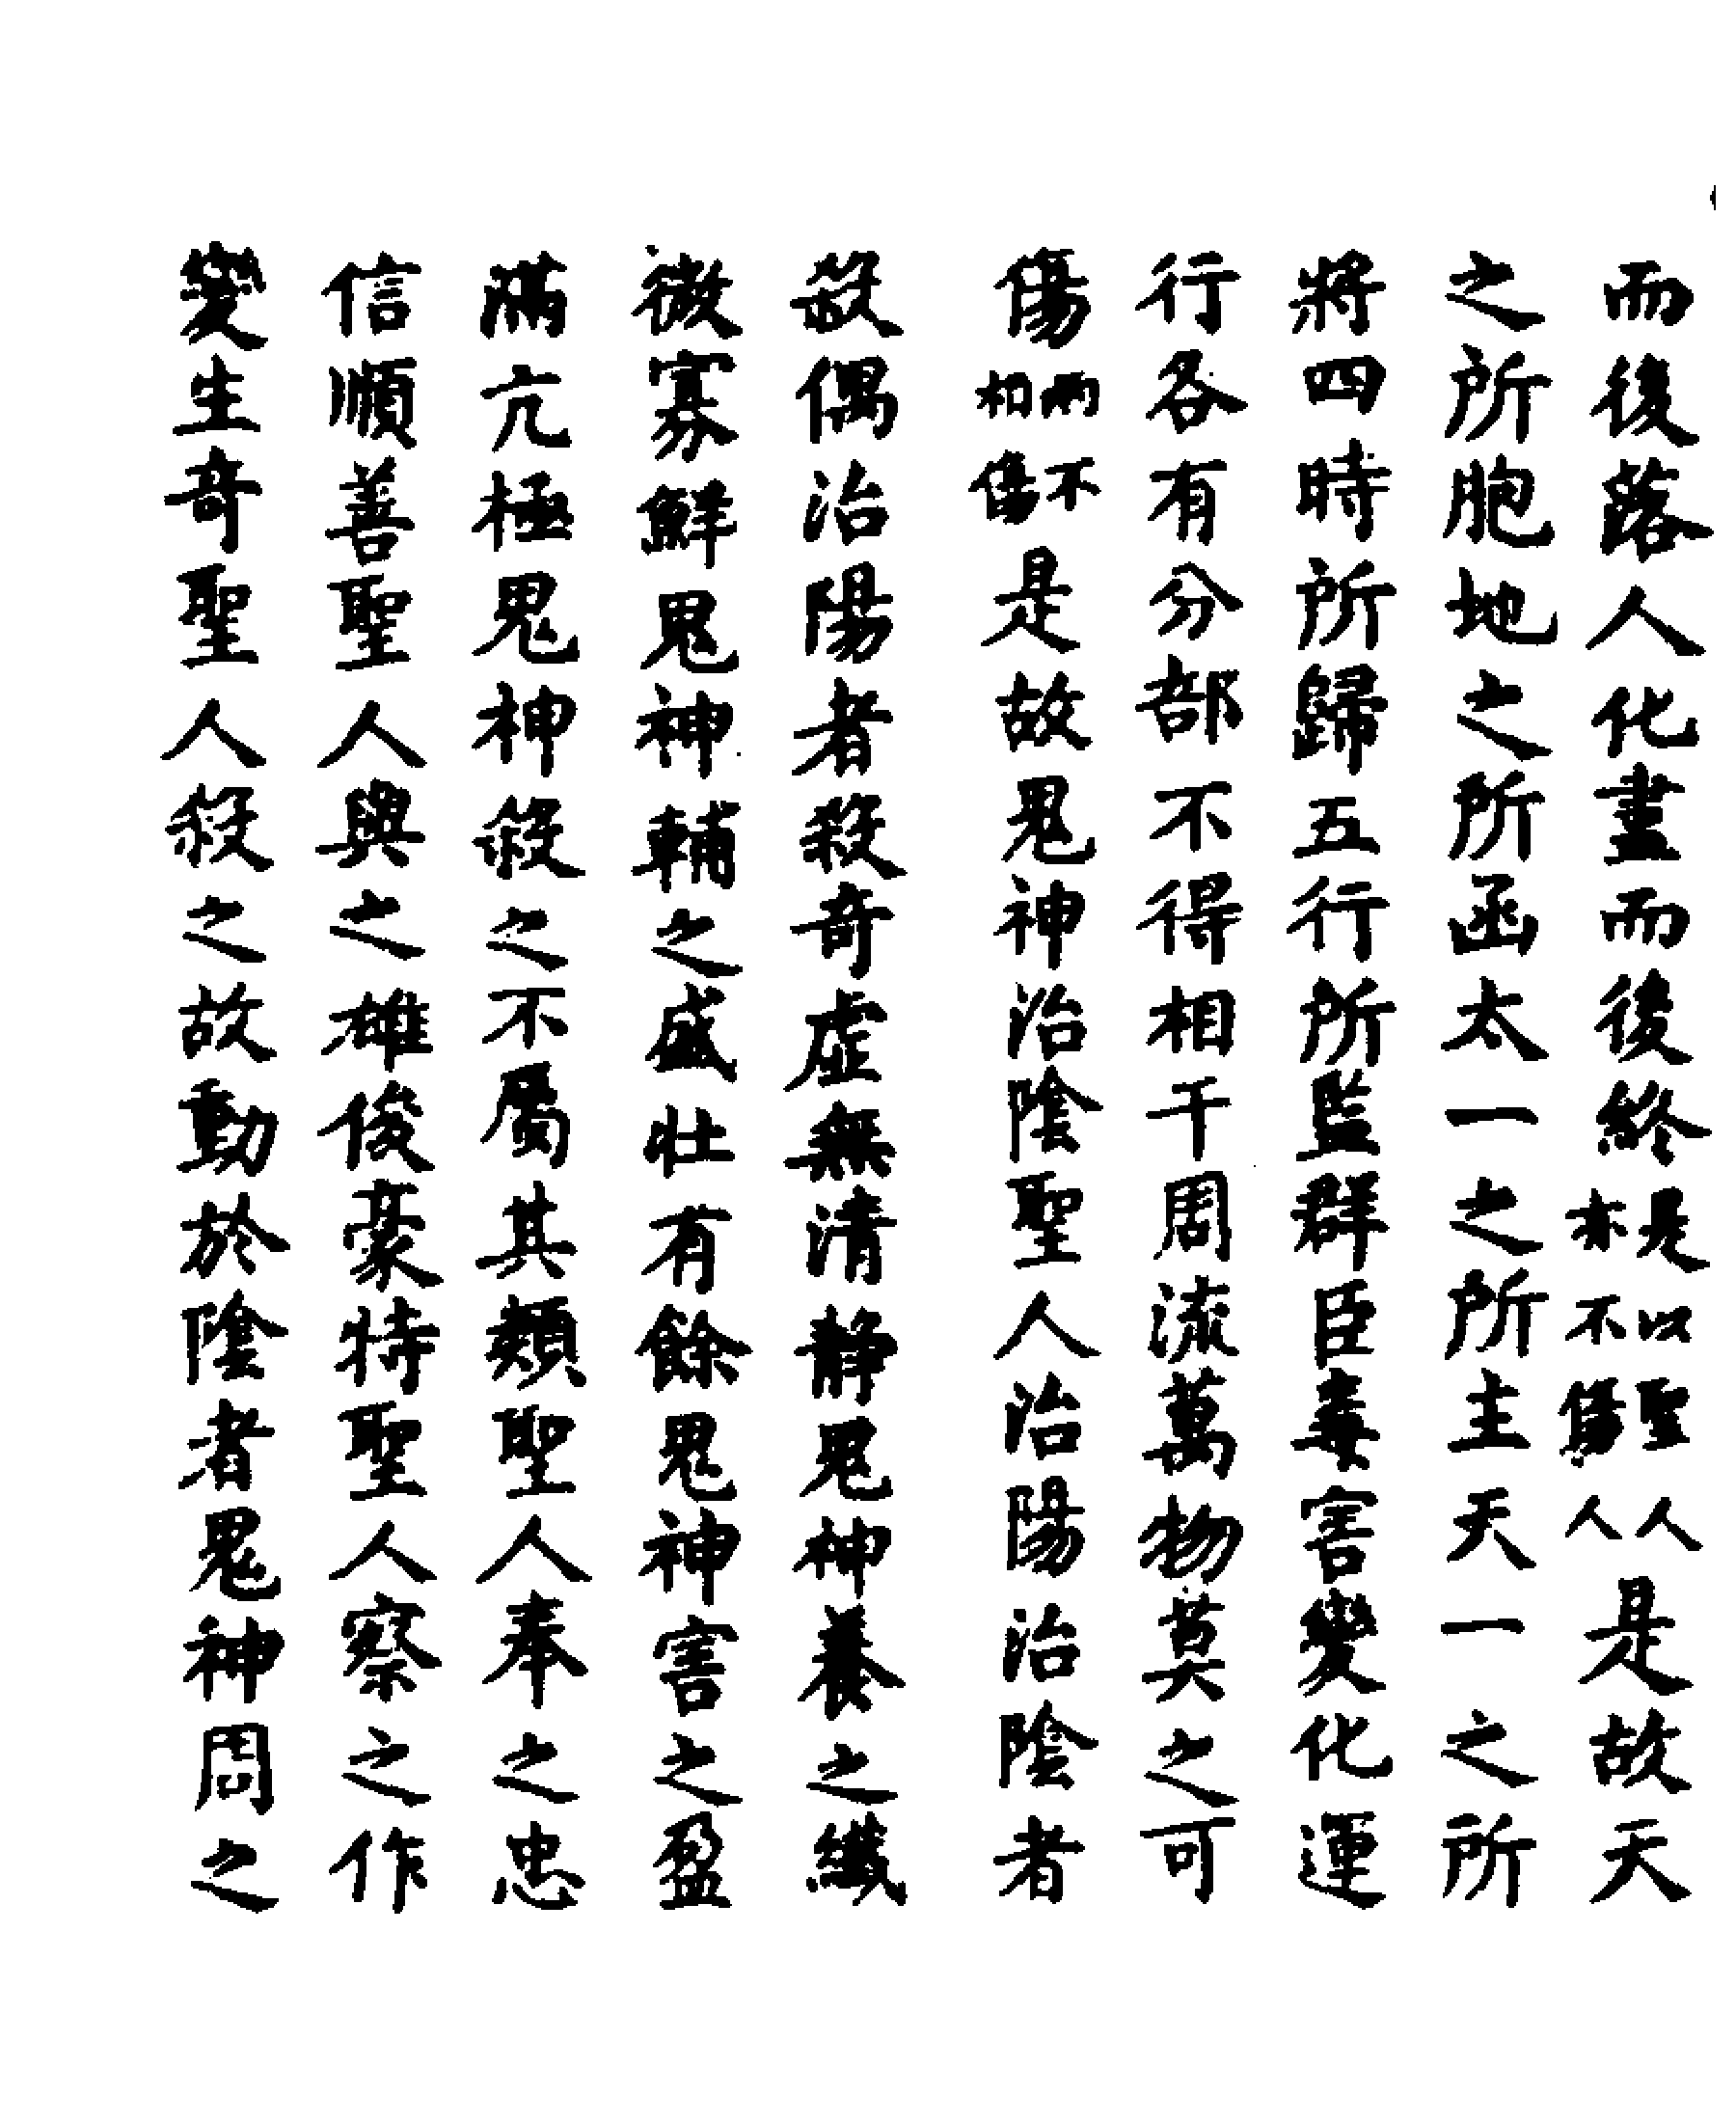 而後落人化畫而後終是以聖人亦不傷人是故天
之所胞地之所函太一之所主天一之所
將四時所歸五行所監群臣毒害變化運
行各有分部不得相干周流萬物莫之可
傷兩不相傷是故鬼神治陰聖人治陽治陰者
殺偶治陽者殺奇虛無清静鬼神養之纖
微寡鮮鬼神輔之盛壯有餘鬼神害之盈
滿亢極鬼神殺之不屬其類聖人奉之忠
信順善聖人與之雄俊豪特聖人察之作
變生奇聖人殺之故動於陰者鬼神周之